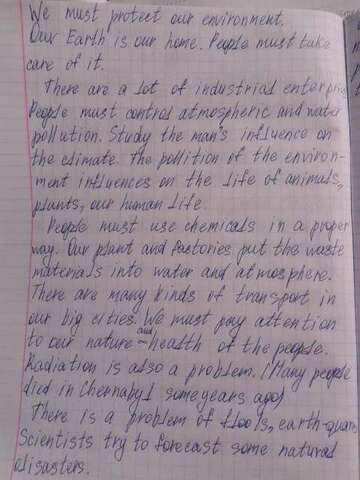 We must protect our environment.
Our Earth is our home. People must take
care of it.
There are a lot of industrial enterpris
People must control atmospheric and water
pollution. Study the man's influence on
the climate. The pollition of the environ-
ment influences on the life of animals,
plants, our human life.
People must use chemicals in a proper
way. Our plant and factories put the waste
materials into water and atmosphere.
There are many kinds of transport in
our big cities. We must pay attention
to our nature and health of the people.
Radiation is also a problem. (Many people
died in Chernobyl some years ago)
There is a problem of floods, earth-quak
Scientists try to forecast some natural
disasters.